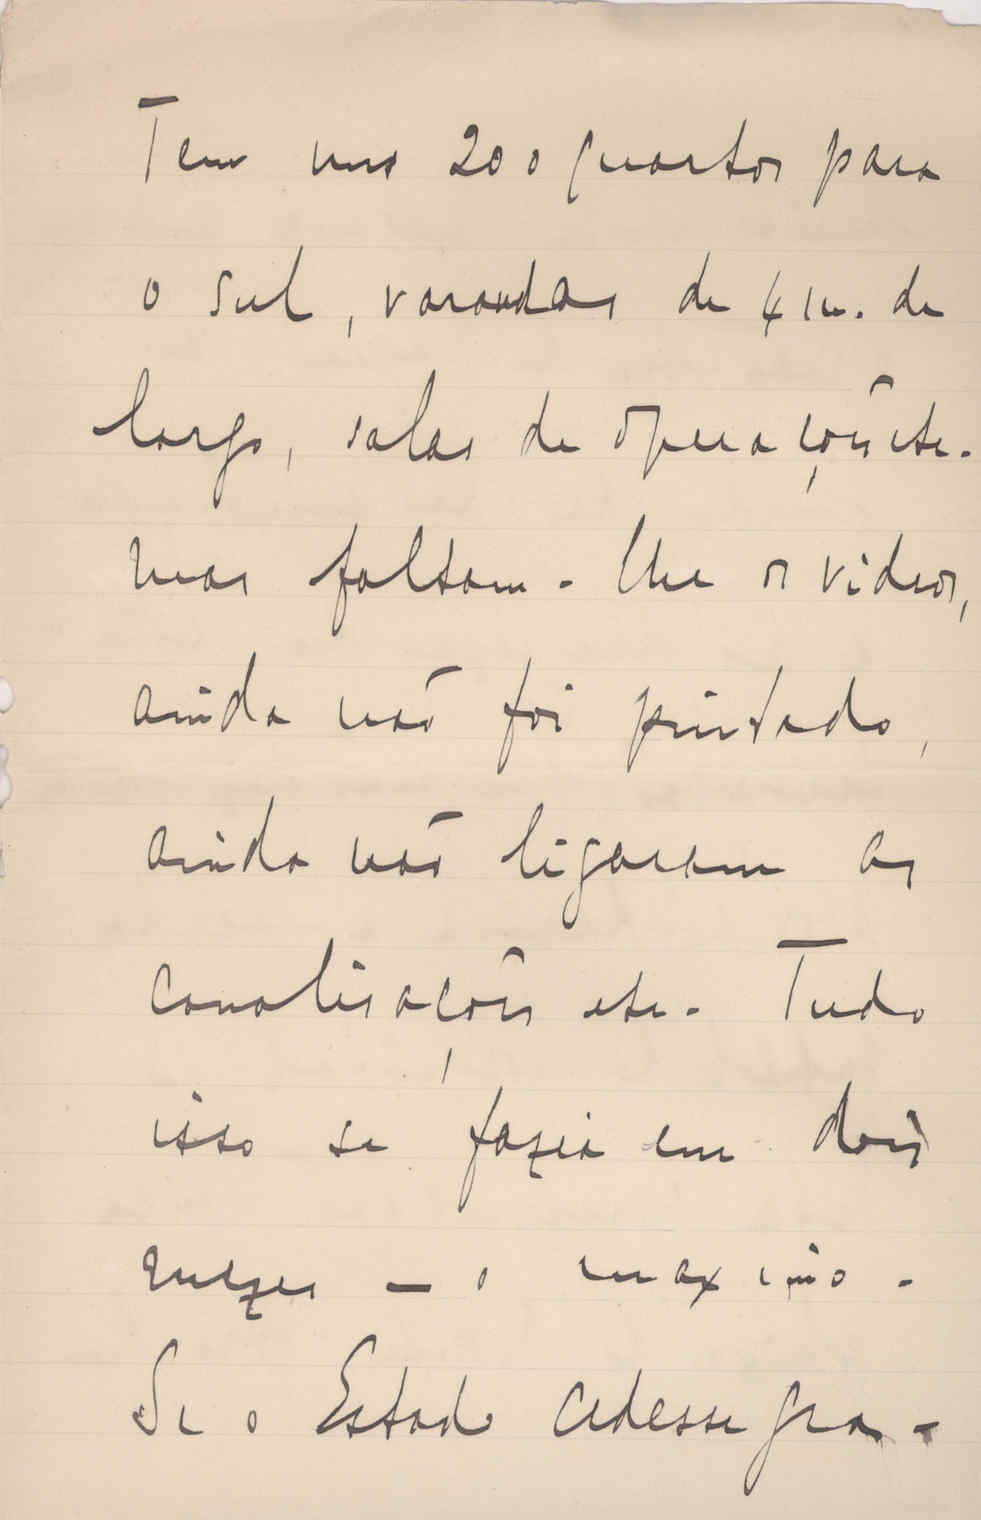 Tem uns 200 quartos para
o sul, varandas de 4 m. de
largo, salas de operações etc.
mas faltam-lhe os vidros,
ainda não foi pintado,
ainda não ligaram as
canalisações etc. Tudo
isso se fazia em dois
mezes — o maximo.
Se o Estado cedesse gra-